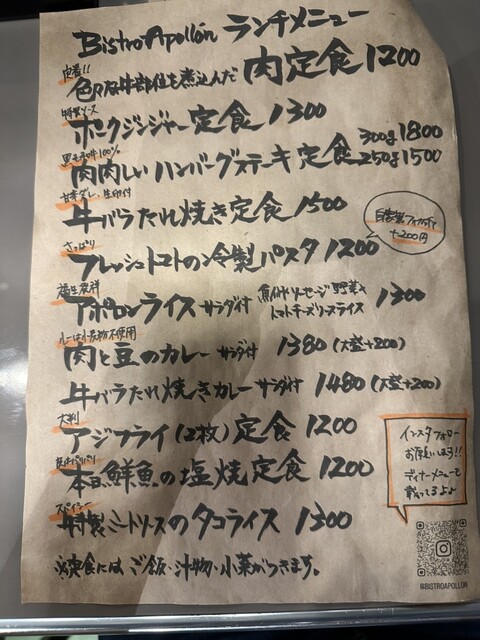 Bistro Apollón ランチメニュー
定番!!
色んな牛部位を煮込んだ 肉定食 1200
特製ソース
ポークジンジャー定食 1300
黒毛和牛100%
肉肉しいハンバーグステーキ定食 300g 1800
250g 1500
甘辛ダレ、生卵付
牛バラたれ焼き定食 1500
さっぱり
フレッシュトマトの冷製パスタ 1200
自家製フォカッチャ
+200円
アポロンライス サラダ付 魚介ソーセージ野菜
トマトチーズソースライス 1300
ルーは小麦粉不使用
肉と豆のカレー サラダ付 1380 (大盛+200)
牛バラたれ焼きカレー サラダ付 1480 (大盛+200)
大判
アジフライ(2枚)定食 1200
皮はパリパリ
本日鮮魚の塩焼定食 1200
スパイシー
特製ミートソースのタコライス 1300
※定食にはご飯・汁物・小菜がつきます。
インスタフォロー
お願いします!!
ディナーメニューも
載ってるよ♪
@BISTROAPOLLON